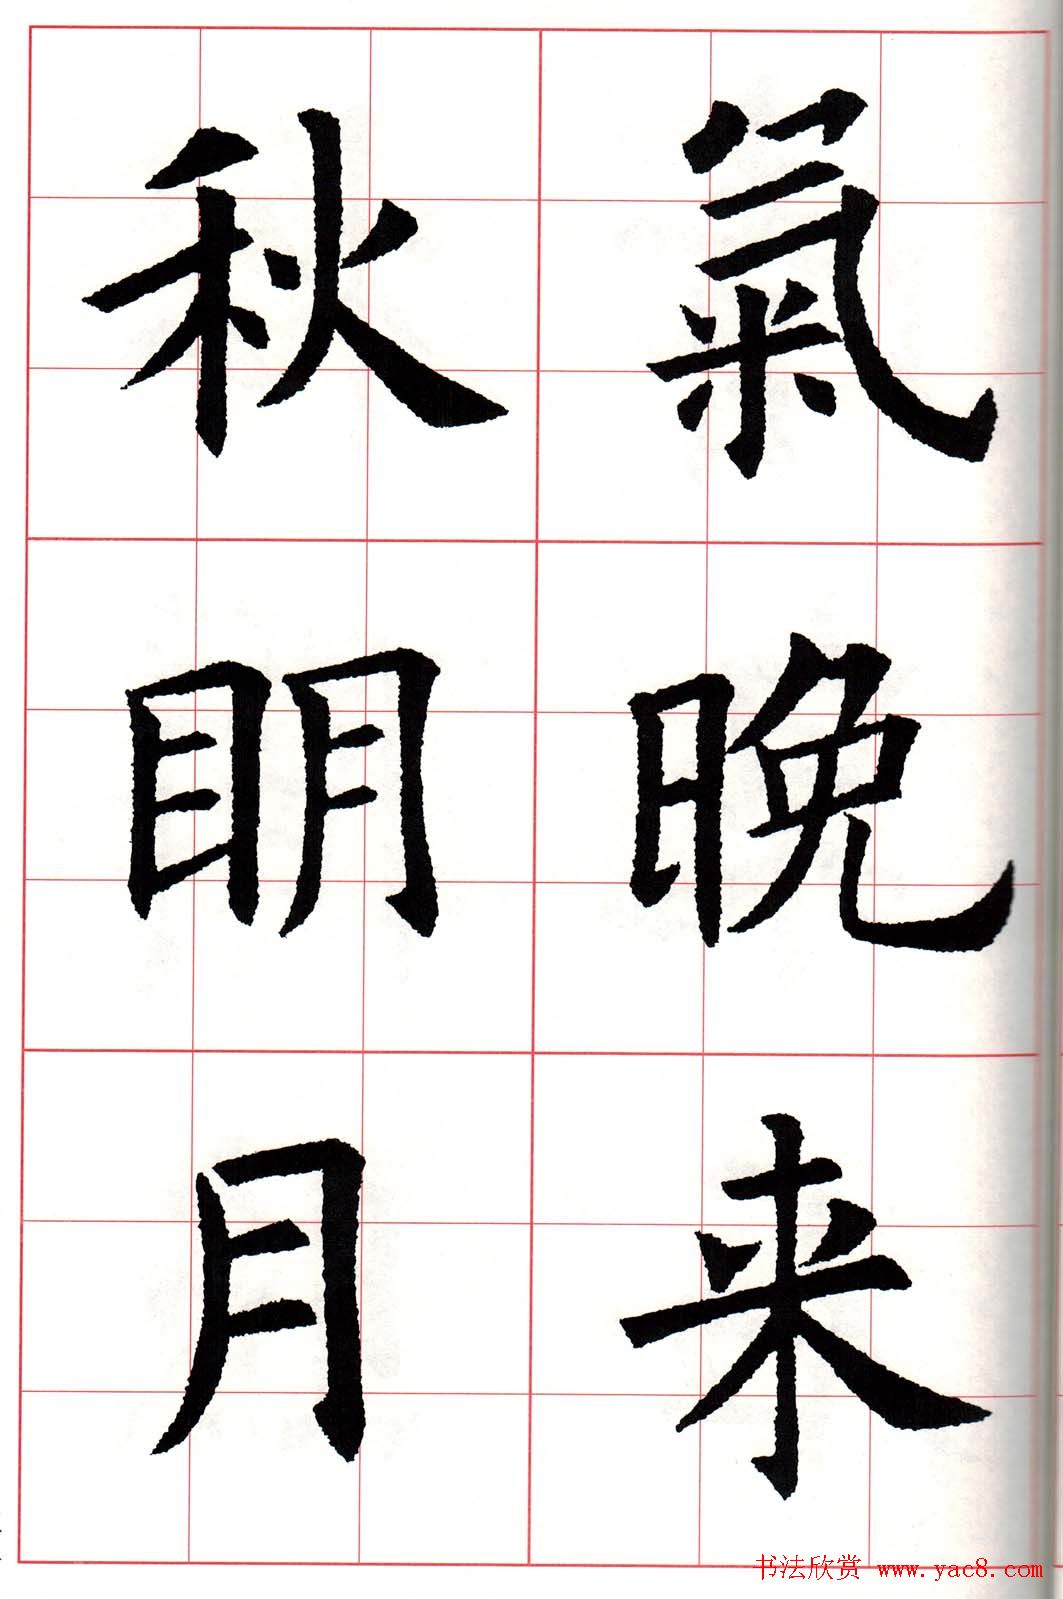 氣晚来
秋眀月
书法欣赏 www.yac8.com